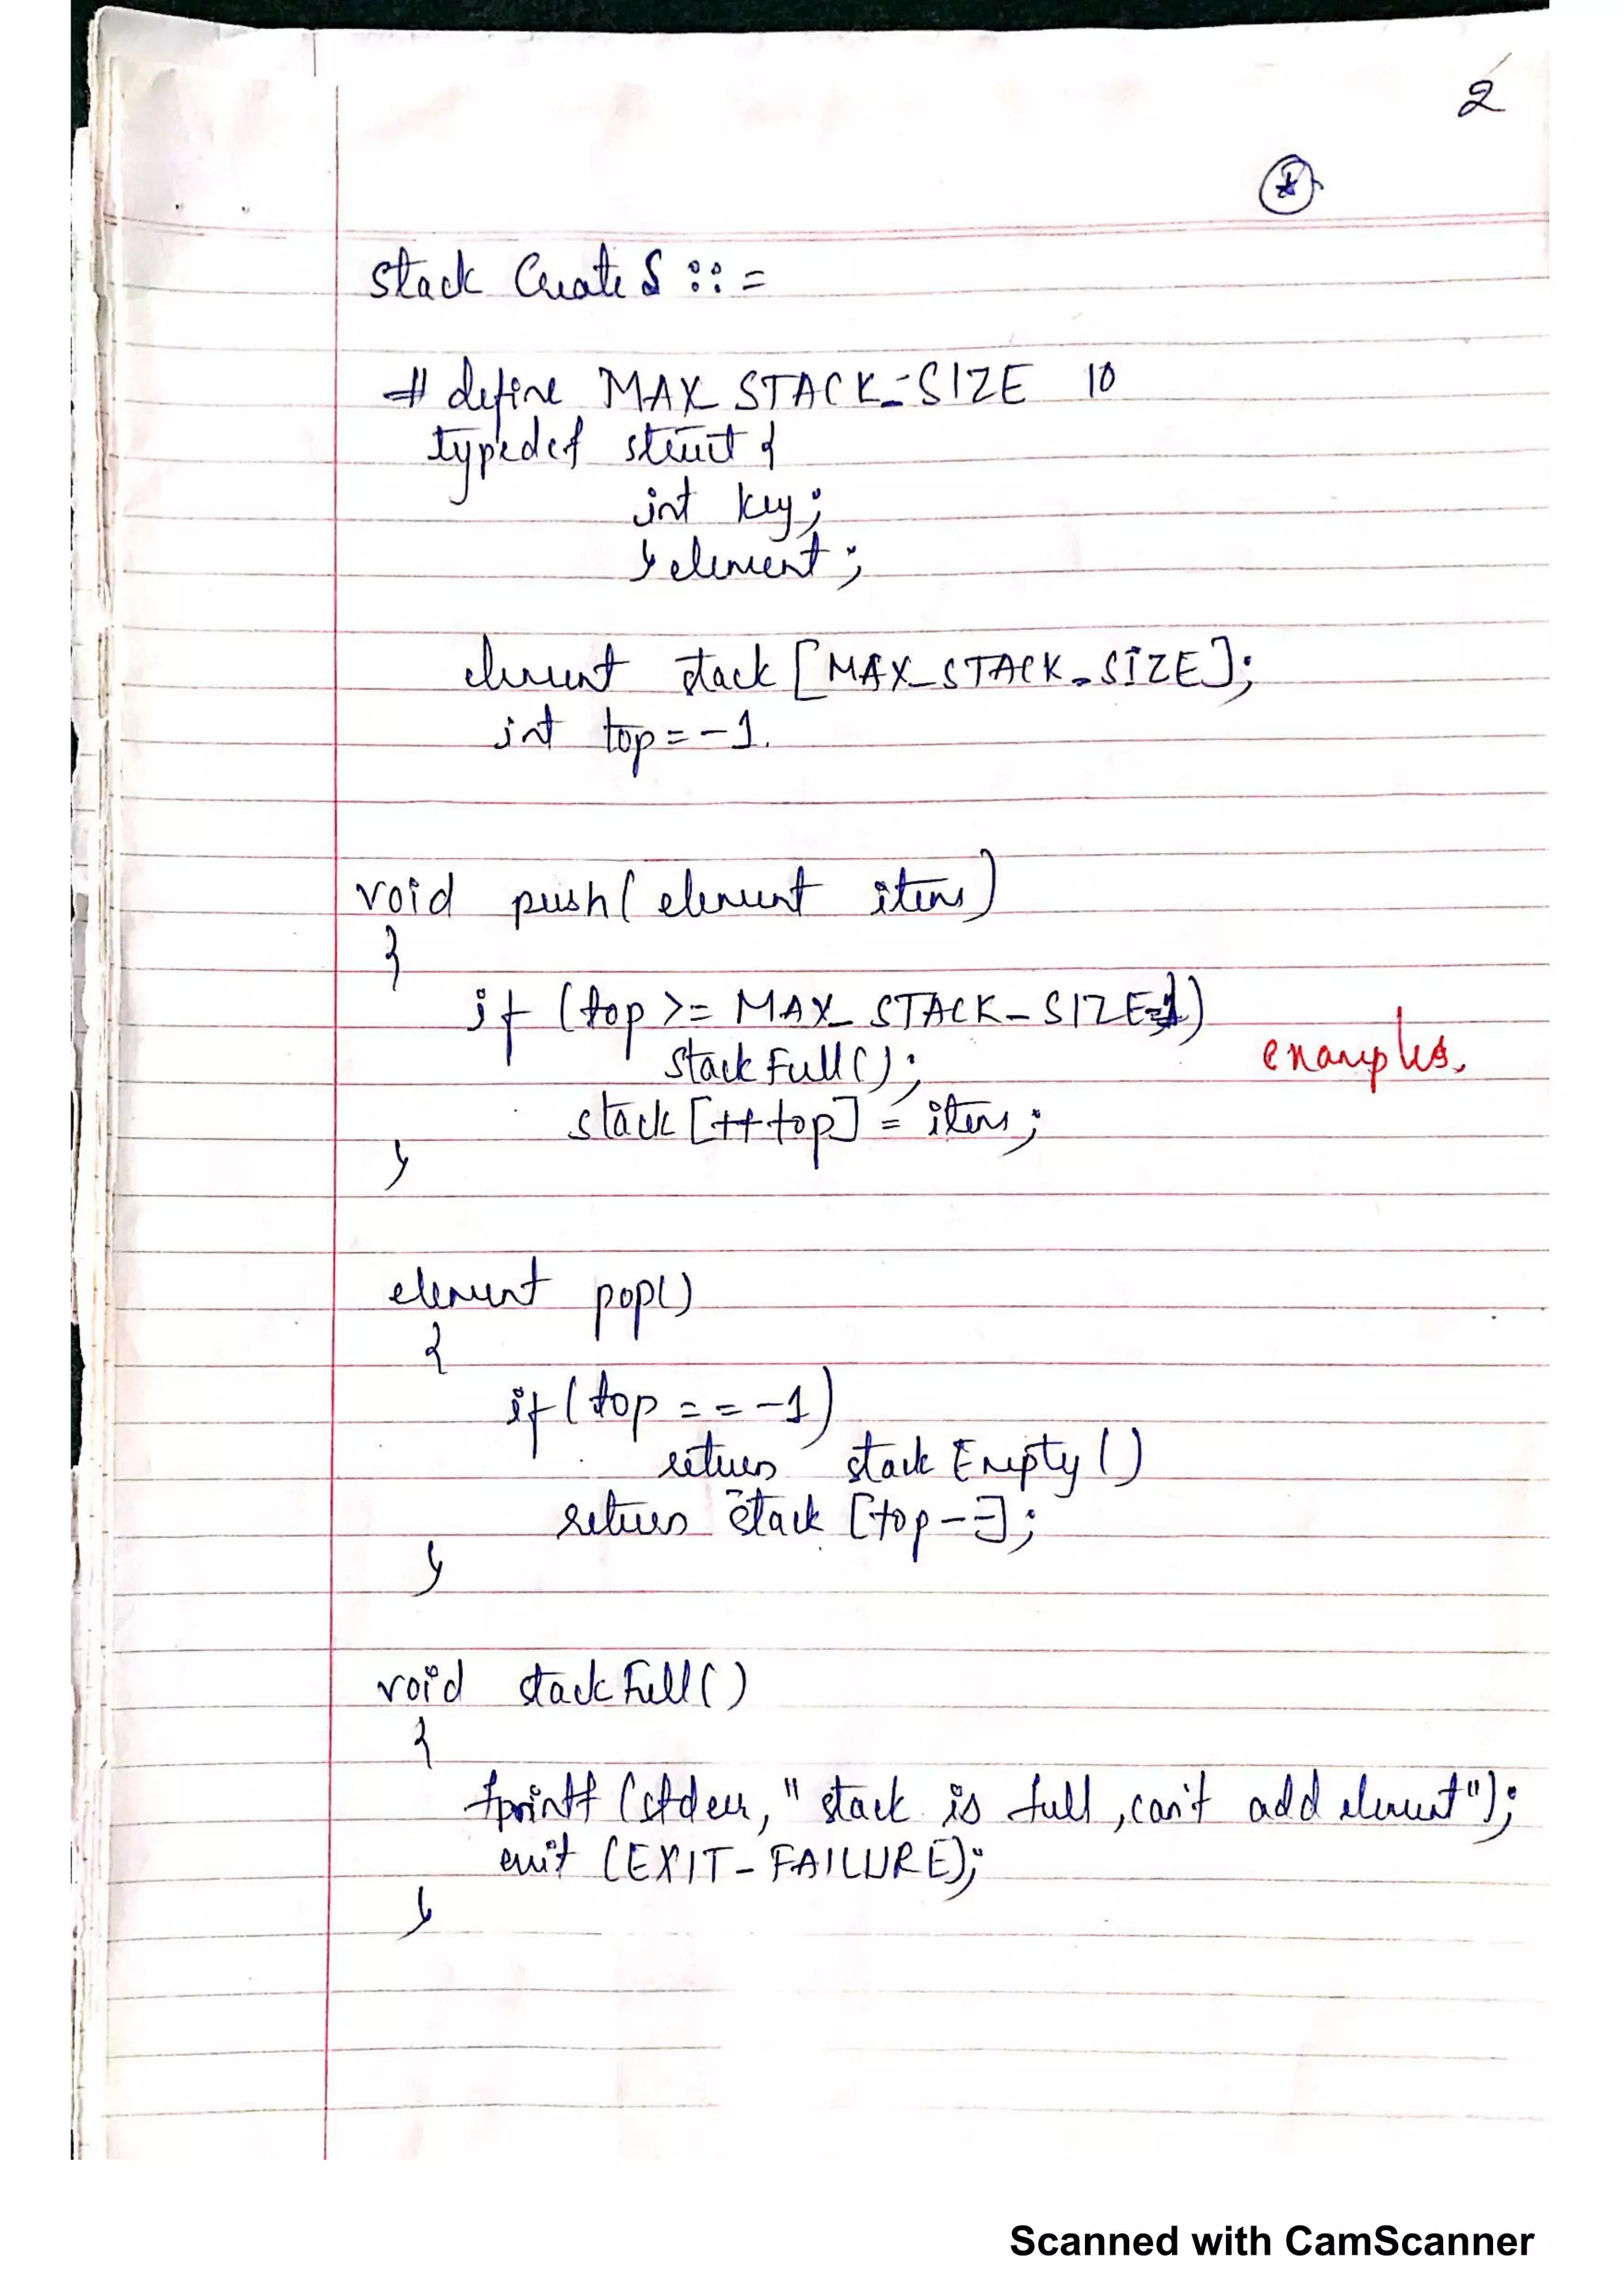 2
stack CreateS ::=
# define MAX_STACK_SIZE 10
typedef struct {
int key;
} element;
element stack [MAX_STACK_SIZE];
int top = -1.
void push( element item)
{
if (top >= MAX_STACK_SIZE-1)
stackFull();
examples.
stack [++top] = item;
}
element pop()
{
if (top == -1)
return stackEmpty ()
return stack [top--];
}
void stackFull()
{
fprintf (stderr, "stack is full, can't add element");
exit (EXIT_FAILURE);
}
Scanned with CamScanner